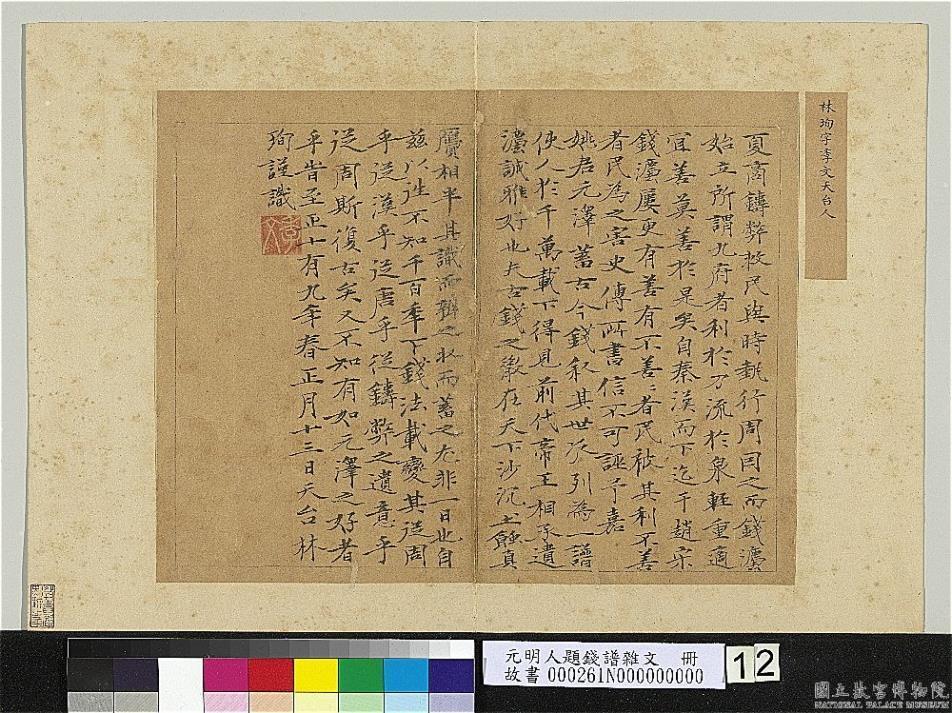 林珣字孝文天台人
夏商鑄弊救民與時執行周因之而錢灋
始立所謂九府者利於刀流於泉輕重適
宜善莫善於是矣自秦漢而下迄于趙宗
錢灋屢更有善有不善〻者民被其利不善
者民為之害史傳所書信不可誣予嘉
姚君元澤蓄古今錢叙其世次列為一譜
使人於千萬載下得見前代帝王相承遺
灋誠雅好也夫古錢之散在天下沙沉土蝕真
贋相半其識而辨之收而蓄之尤非一日也自
茲以往不知千百年下錢法載變其從周
乎從漢乎從唐乎從鑄弊之遺意乎
從周斯復古矣又不知有如元澤之好者
乎旹至正十有九年春正月十三日天台林
珣謹識
孝文
元明人題錢譜雜文 冊
故書 000261N000000000
12
國立故宮博物院
NATIONAL PALACE MUSEUM